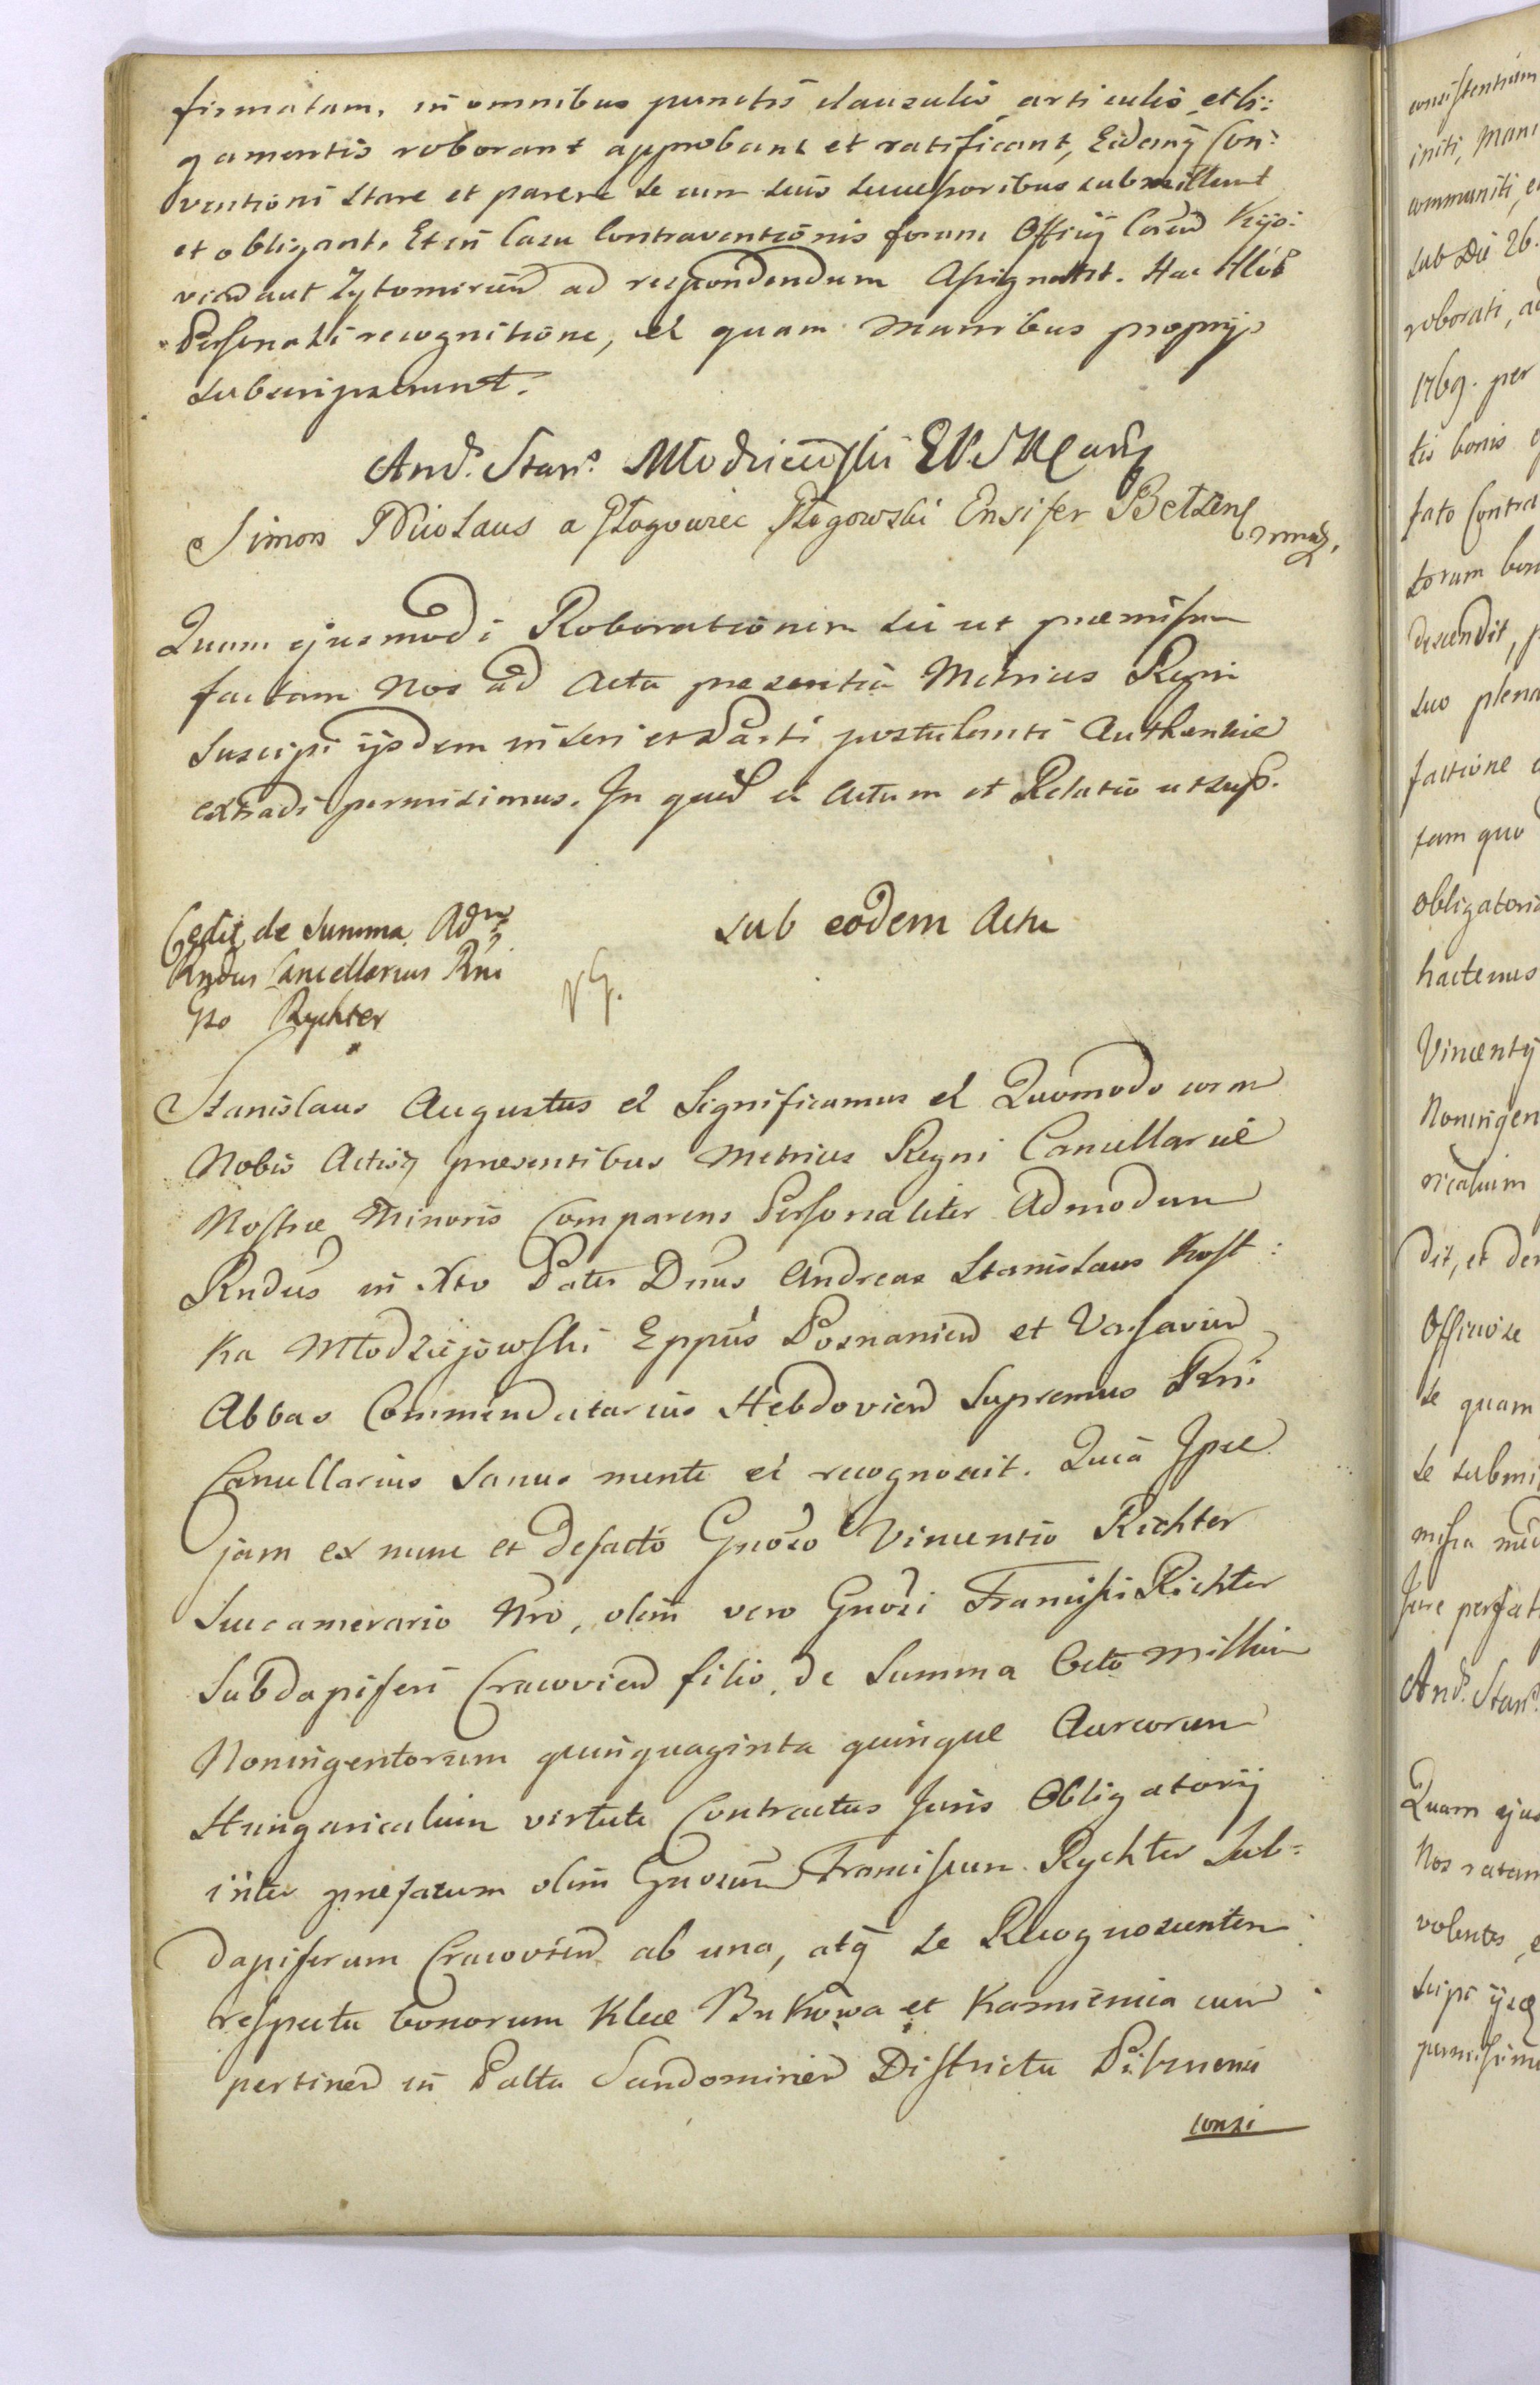 firmatam, in omnibus punctis clausulis articulis et li:
gamentis roborant approbant et ratificant, Eidemq Con:
ventioni stare et parere se cum suis successoribus submittunt
et obligant. Et in Casu Contraventionis forum Officij Castrn Kijo:
vien aut Zytomirien ad respondendum assignant. Hac
Personali recognitione, et quam manibus proprijs
subscripserunt.
Andr. Stans. Młodzieiowski E.P.
Simon Nicolaus a Głogowiec Głogowski Ensifer Betzens mmp.
Quam ejusmodi Roborationem sic ut præmissum
factam Nos ad Acta præsentia Metrices Regni
suscipi ijsdem inseri et Parti postulanti Authentice
extradi permisimus. In quod et Actum et Relatio ut sup.
Cedit de Summa Adm
Rndus Cancellarius Rni
Gso Rychter
sub eodem Actu
Stanislaus Augustus et Significamus et Quomodo coram
Nobis Actisq præsentibus Metrices Regni Cancellariæ
Nostræ Minoris Comparens Personaliter Admodum
Rndus in Xto Pater Dnus Andreas Stanislaus Kost:
ka Młodziejowski Eppus Posnanien et Varsavien
Abbas Commendatarius Hebdovien Supremus Rni
Cancellarius Sanus mente et recognovit. Quia Ipse
jam ex nunc et defacto Gnoso Vincentio Richter
Succamerario Nro, olim vero Gnosi Francisci Richter
Subdapiferi Cracovien filio, de Summa Octo millium
Noningentorum quinquaginta quinque Aureorum
Hungaricalium virtute Contractus Juris Obligatorij
inter præfatum olim Gnosum Franciscum Rychter Sub=
dapiferum Cracovien ab una, atq se Recognoscentem
respectu bonorum Klecie Bukowa et Kamienica cum
pertinen in Pattu Sandomirien Districtu Pilsnensi
consi
consistentium
initi, Manu
communiti, e
sub Die 26.
roborati, ad
1769. per
tis bonis
fato Contra
torum bon
descendit, p
suo plena
factione
tam quo
obligatori
hactenus
Vincentij
Noningen
ricalium
dit, et de
Officiose
se quam
se submi
missa
Jure perfat
Andr. Stans.
Quam ejus
Nos ratam
volentes, e
scipi ijsq
permisimu